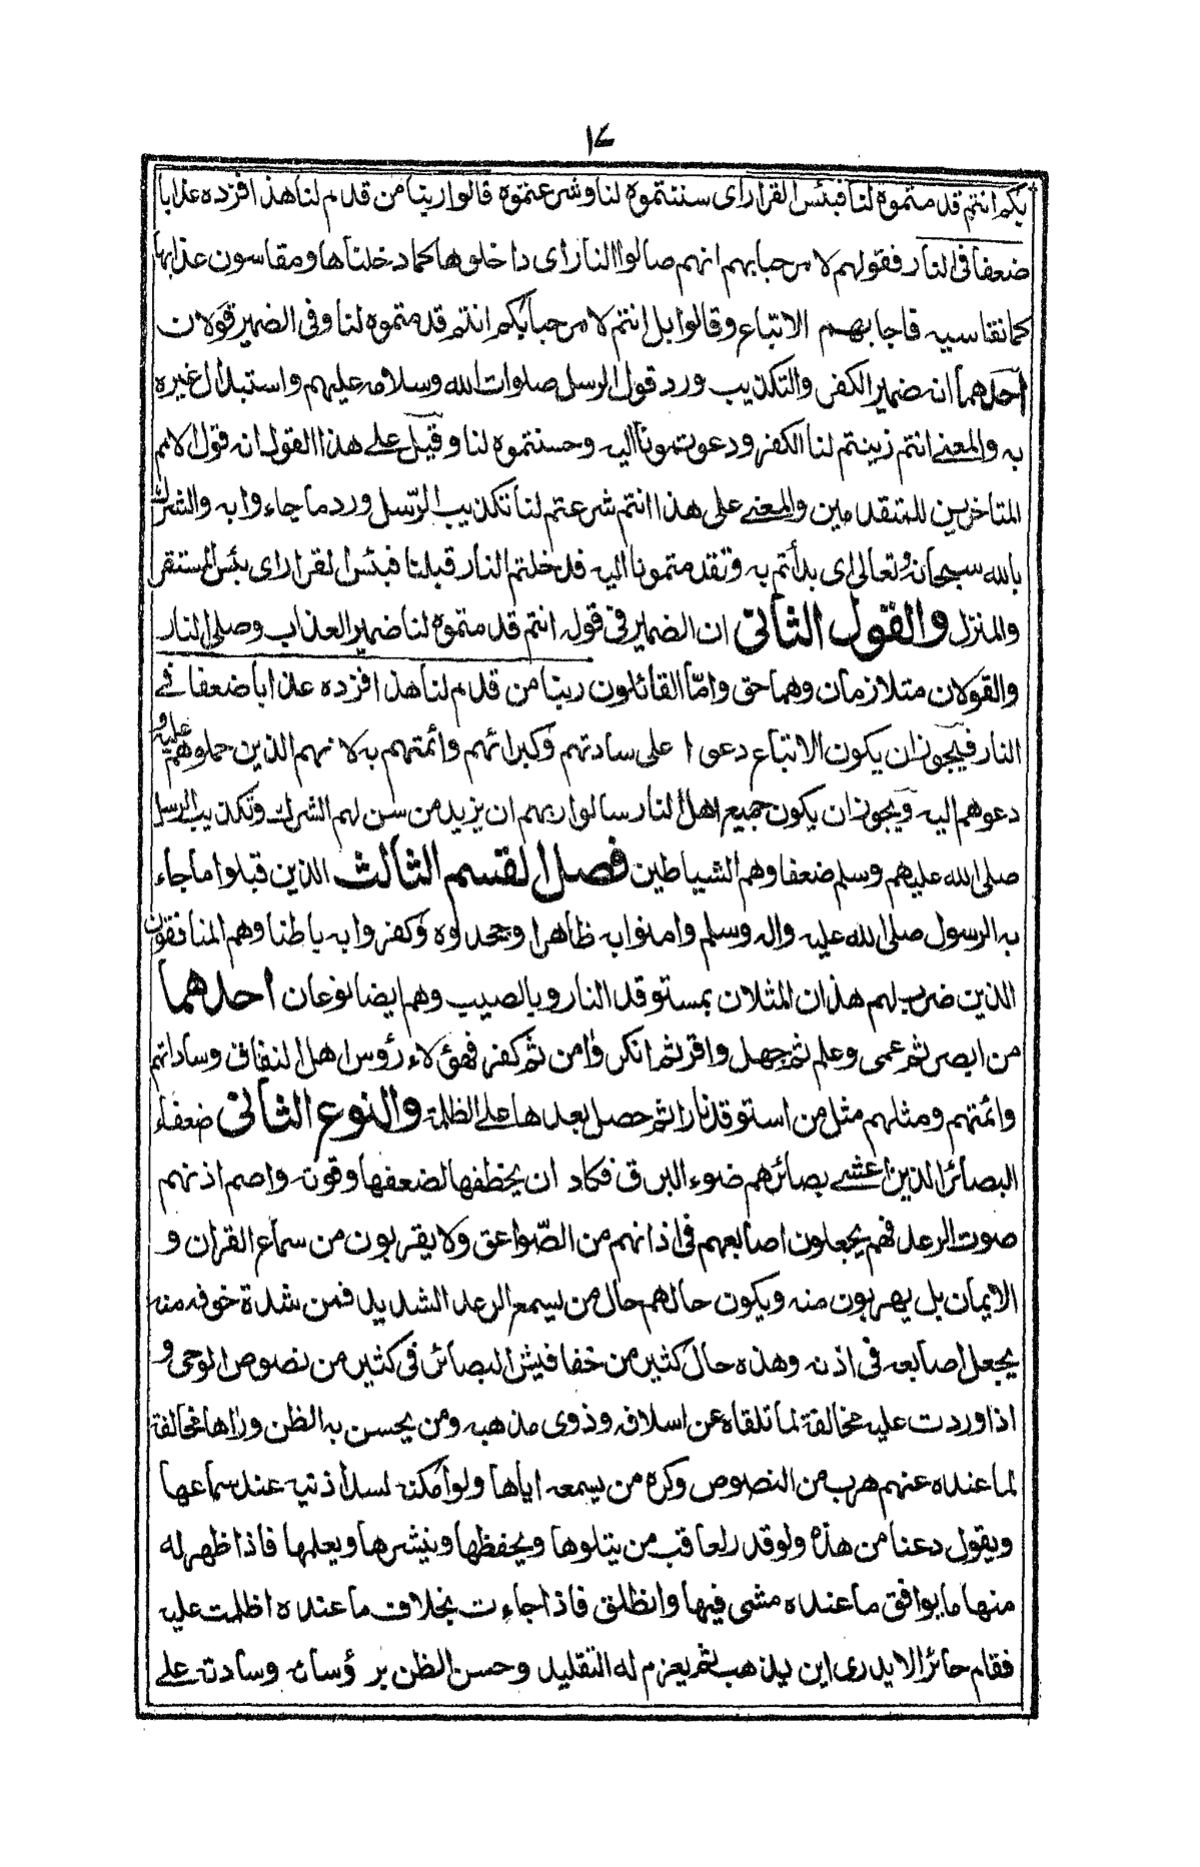 ١٧
بكم انتم قدمتموه لنا فبئس القرار اى سننتموه لنا وشرعتموه قالوا ربنا من قدم لنا هذا فزده عذابا
ضعفا فى النار فقولهم لا مرحبا بهم انهم صالوا النار اى داخلوها كما دخلناها ومقاسون عذابها
كما نقاسيه فاجابهم الاتباع وقالوا بل انتم لا مرحبا بكم انتم قدمتموه لنا وفى الضمير قولان
احدهما انه ضمير الكفر والتكذيب ورد قول الرسل صلوات الله وسلامه عليهم واستبدال غيره
به والمعنى انتم زينتم لنا الكفر ودعوتمونا اليه وحسنتموه لنا وقيل على هذا القول انه قول الامم
المتاخرين للمتقدمين والمعنى على هذا انتم شرعتم لنا تكذيب الرسل ورد ما جاءوا به والشرك
بالله سبحانه وتعالى اى بدأتم به وتقدمتمونا اليه فدخلتم النار قبلنا فبئس القرار اى بئس المستقر
والمنزل والقول الثانى ان الضمير فى قوله انتم قدمتموه لنا ضمير العذاب وصلى النار
والقولان متلازمان وهما حق واما القائلون ربنا من قدم لنا هذا فزده عذابا ضعفا فى
النار فيجوز ان يكون الاتباع دعوا على سادتهم وكبرائهم وائمتهم به لانهم الذين حملوهم عليه و
دعوهم اليه ويجوز ان يكون جميع اهل النار سالوا ربهم ان يزيد من سن لهم الشرك وتكذيب الرسل
صلى الله عليهم وسلم ضعفا وهم الشياطين فصل القسم الثالث الذين قبلوا ما جاء
به الرسول صلى الله عليه واله وسلم وامنوا به ظاهرا وجحدوه وكفروا به باطنا وهم المنافقون
الذين ضرب لهم هذان المثلان بمستوقد النار وبالصيب وهم ايضا نوعان احدهما
من ابصر ثم عمى وعلم ثم جهل واقر ثم انكر وامن ثم كفر فهؤلاء رؤس اهل النفاق وساداتهم
وائمتهم ومثلهم مثل من استوقد نارا ثم حصل بعدها على الظلمة والنوع الثانى ضعفاء
البصائر الذين اعشى بصائرهم ضوء البرق فكاد ان يخطفها لضعفها وقوته واصم اذنهم
صوت الرعد فهم يجعلون اصابعهم فى اذانهم من الصواعق ولا يقربون من سماع القران و
الايمان بل يهربون منه ويكون حالهم حال من يسمع الرعد الشديد فمن شدة خوفه منه
يجعل اصابعه فى اذنه وهذه حال كثير من خفافيش البصائر فى كثير من نصوص الوحى و
اذا وردت عليه مخالفة لما تلقاه عن اسلافه وذوى مذهبه ومن يحسن به الظن وراها مخالفة
لما عنده عنهم هرب من النصوص وكره من يسمعه اياها ولو امكنه لسد اذنيه عند سماعها
ويقول دعنا من هذه ولو قدر لعاقب من يتلوها ويحفظها وينشرها ويعلمها فاذا ظهر له
منها ما يوافق ما عنده مشى فيها وانطلق فاذا جاءت بخلاف ما عنده اظلمت عليه
فقام حائرا لا يدرى اين يذهب ثم يعزم له التقليد وحسن الظن برؤسائه وسادته على